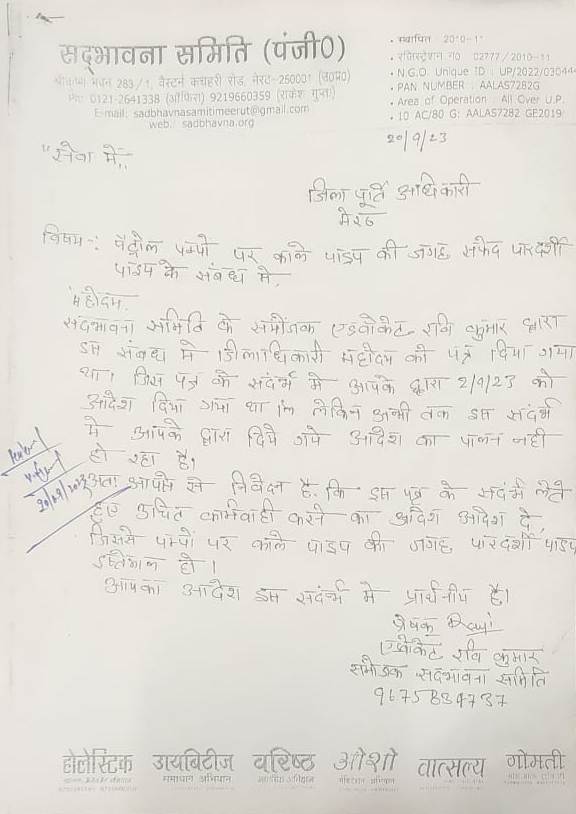 सद्भावना समिति (पंजी0)
भवन 283/1, वैस्टर्न कचहरी रोड, मेरठ-250001 (उ0प्र0)
Ph: 0121-2641338 (ऑफिस) 9219660359 (राकेश गुप्ता)
E-mail: sadbhavnasamitimeerut@gmail.com
web.: sadbhavna.org
• स्थापित 2010-11
• रजिस्ट्रेशन नं0 02777/2010-11
• N.G.O. Unique ID : UP/2022/030444
• PAN NUMBER : AALAS7282G
• Area of Operation : All Over U.P.
• 10 AC/80 G: AALAS7282 GE2019
20/9/23
"सेवा में,
जिला पूर्ति अधिकारी
मेरठ
विषय-: पैट्रोल पम्पो पर काले पाइप की जगह सफेद पारदर्शी
पाइप के संबंध मे,
महोदय,
सदभावना समिति के संयोजक एडवोकेट रवि कुमार द्वारा
इस संबंध मे जिलाधिकारी महोदय को पत्र दिया गया
था। जिस पत्र के संदर्भ मे आपके द्वारा 2/9/23 को
आदेश दिया गया था लेकिन अभी तक इस संदर्भ
मे आपके द्वारा दिये गये आदेश का पालन नही
हो रहा है।
अतः आपसे से निवेदन है. कि इस पत्र के संदर्भ लेते
हुए उचित कार्यवाही करने का आदेश आदेश दे,
जिससे पम्पो पर काले पाइप की जगह पारदर्शी पाइप
इस्तेमाल हो।
आपका आदेश इस संदर्भ मे प्रार्थनीय है।
20/09/2023
प्रेषक Ravi
एडवोकेट रवि कुमार
संयोजक सदभावना समिति
9675834737
होलेस्टिक डायबिटीज वरिष्ठ ओशो वात्सल्य गोमती
समाधान अभियान